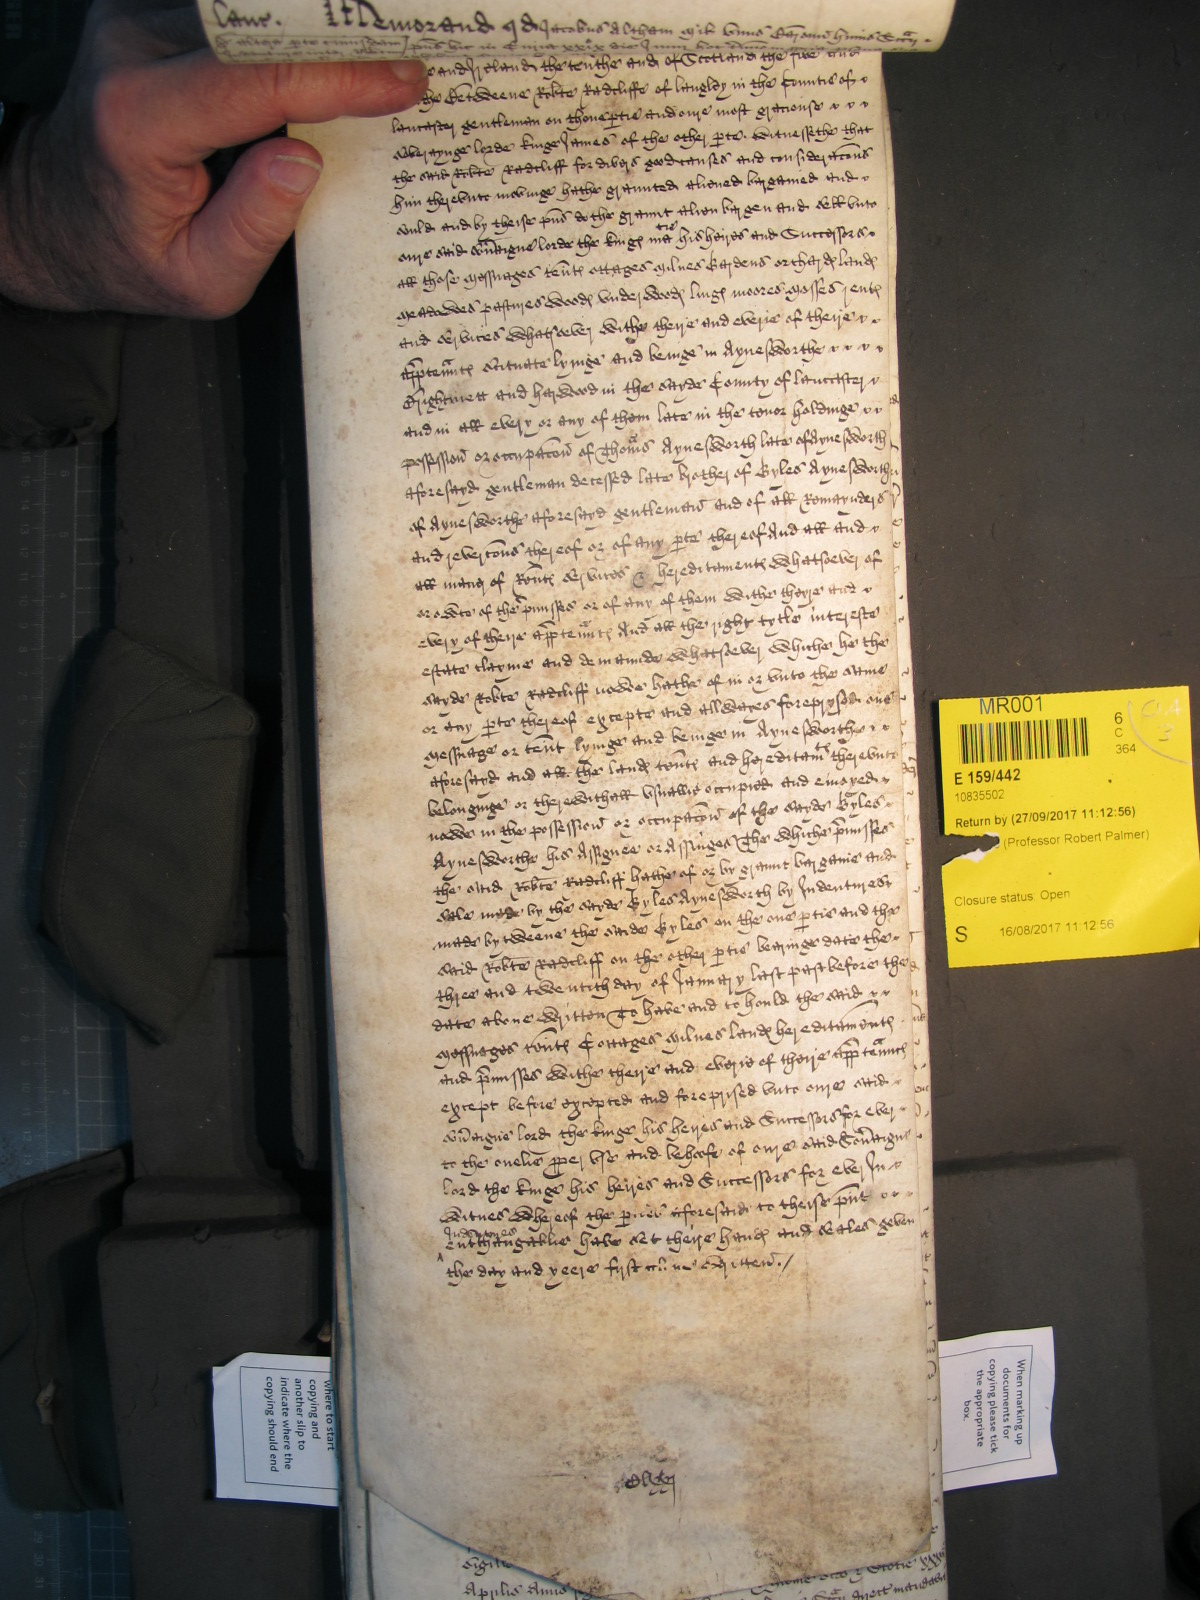 Lanc. Memorand qd Jacobus Altham
and Ireland the tenthe and of Scotland the five and
the Betweene Robte Radcliffe of langley in the Countie of
lancaster gentleman on thone ptie and our most gracious
soveraynge lorde kinge James of the other pte. Witnessethe that
the said Robte Radcliff for divers good causes and consideracons
him therevnto movinge hathe graunted aliened bargained and
sould and by theise pnts dothe graunt alien bargen and sell vnto
oure said sovraigne lorde the kings matie his heires and Successors
all those Messuages tents cottages Milnes Gardens orchards lands
Meadowes pastures woods vnderwoods lings moores Mosses rents
and services whatsoever withe theire and everie of theire
apptenancs scituate lyinge and beinge in Aynesworthe
Brightmett and harwood in the sayde County of lancaster
and in all every or any of them late in the tenor holdinge
possession or occupacon of Thomas Aynesworth late of Aynesworth
aforesayd gentleman decessed late brother of Gyles Aynesworth
of Aynesworthe aforesayd gentleman and of all Remaynders
and revercons thereof or of any pte thereof And all and
all maner of Rents services & hereditaments whatsoever of
or owte of the pmisses or of any of them withe theire and
every of theire apptenancs And all the right tytle intereste
estate clayme and demaunde whatsoever whiche he the
sayde Robte Radcliff nowe hathe of in or vnto the same
or any pte thereof excepte and allwaies foreprysed one
Messuage or tent lyinge and beinge in Aynesworthe
aforesayd and all the lands tents and hereditamts therevnto
belonginge or therewithall vsuallie occupied and enioyed
nowe in the possession or occupacon of the sayde Gyles
Aynesworthe his Assignee or Assinges The whiche pmisses
the said Robte Radcliff hathe of or by graunt bargaine and
Sale made by the sayde Gyles Aynesworth by Indentures
made bytweene the saide Gyles on the one ptie and the
said Robte Radcliff on the other ptie bearinge date the
three and twentith day of January last past before the
date above written To have and to hould the said
Messuages tents Cottages Milnes lands hereditaments
and pmisses withe theire and everie of theire apptenancs
except before excepted and foreprised vnto oure said
sovraigne lord the kinge his heires and Successors for ever
to the onelie pper vse and behoofe of oure said Sovraigne
lord the kinge his heires and Successors for ever In
witnes whereof the pties aforesaid to theise pnt
Indentures
enterchangablie have set theire hands and seales geven
the day and yeere first above written./
Sigill
Aprilis Anno
MR001
6
C
364
E 159/442
10835502
Return by (27/09/2017 11:12:56)
(Professor Robert Palmer)
Closure status: Open
S 16/08/2017 11:12:56
where to start
copying and
another slip to
indicate where the
copying should end
When marking up
documents for
copying please tick
the appropriate
box.